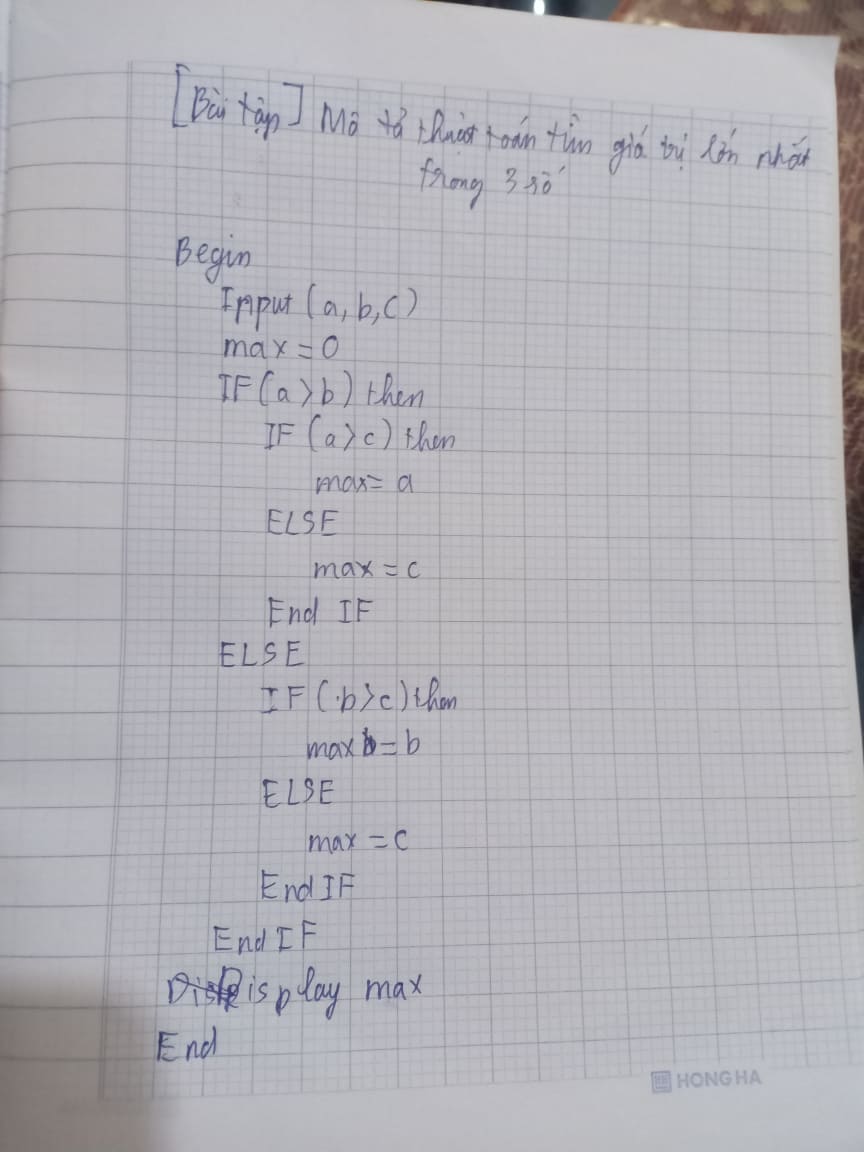 [Bài tập] Mô tả thuật toán tìm giá trị lớn nhất
trong 3 số
Begin
Input (a, b, c)
max = 0
IF (a > b) then
IF (a > c) then
max = a
ELSE
max = c
End IF
ELSE
IF (b > c) then
max = b
ELSE
max = c
End IF
End IF
Display max
End
HONG HA